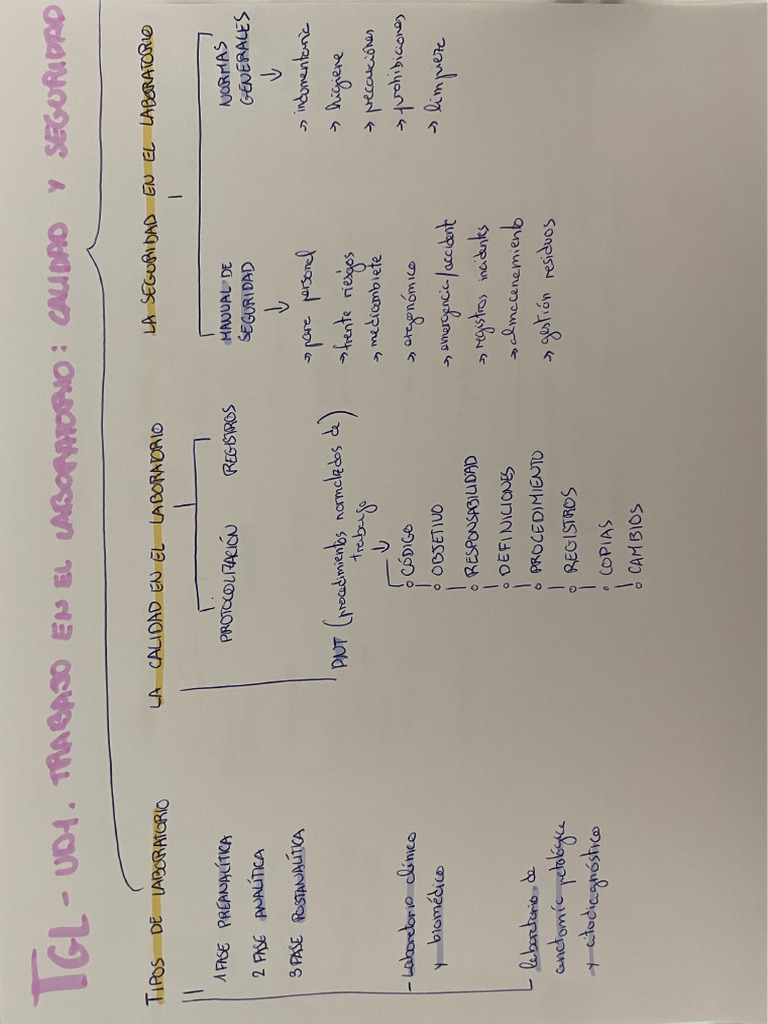 TGL - UD1. TRABAJO EN EL LABORATORIO: CALIDAD Y SEGURIDAD
TIPOS DE LABORATORIO
1 FASE PREANALÍTICA
2 FASE ANALÍTICA
3 FASE POSTANALÍTICA
- Laboratorio clínico
y biomédico
- laboratorio de
anatomía patológica
y citodiagnóstico
LA CALIDAD EN EL LABORATORIO
PROTOCOLIZACIÓN REGISTROS
PNT (procedimientos normalizados de
trabajo)
CÓDIGO
OBJETIVO
RESPONSABILIDAD
DEFINICIONES
PROCEDIMIENTO
REGISTROS
COPIAS
CAMBIOS
LA SEGURIDAD EN EL LABORATORIO
MANUAL DE
SEGURIDAD
→ para personal
→ frente riesgos
→ mediambiete
→ ergonómico
→ emergencia/accident
→ registros incidentes
→ almacenamiento
→ gestión residuos
NORMAS
GENERALES
→ indumentaria
→ higiene
→ precauciónes
→ prohibiciones
→ limpieza